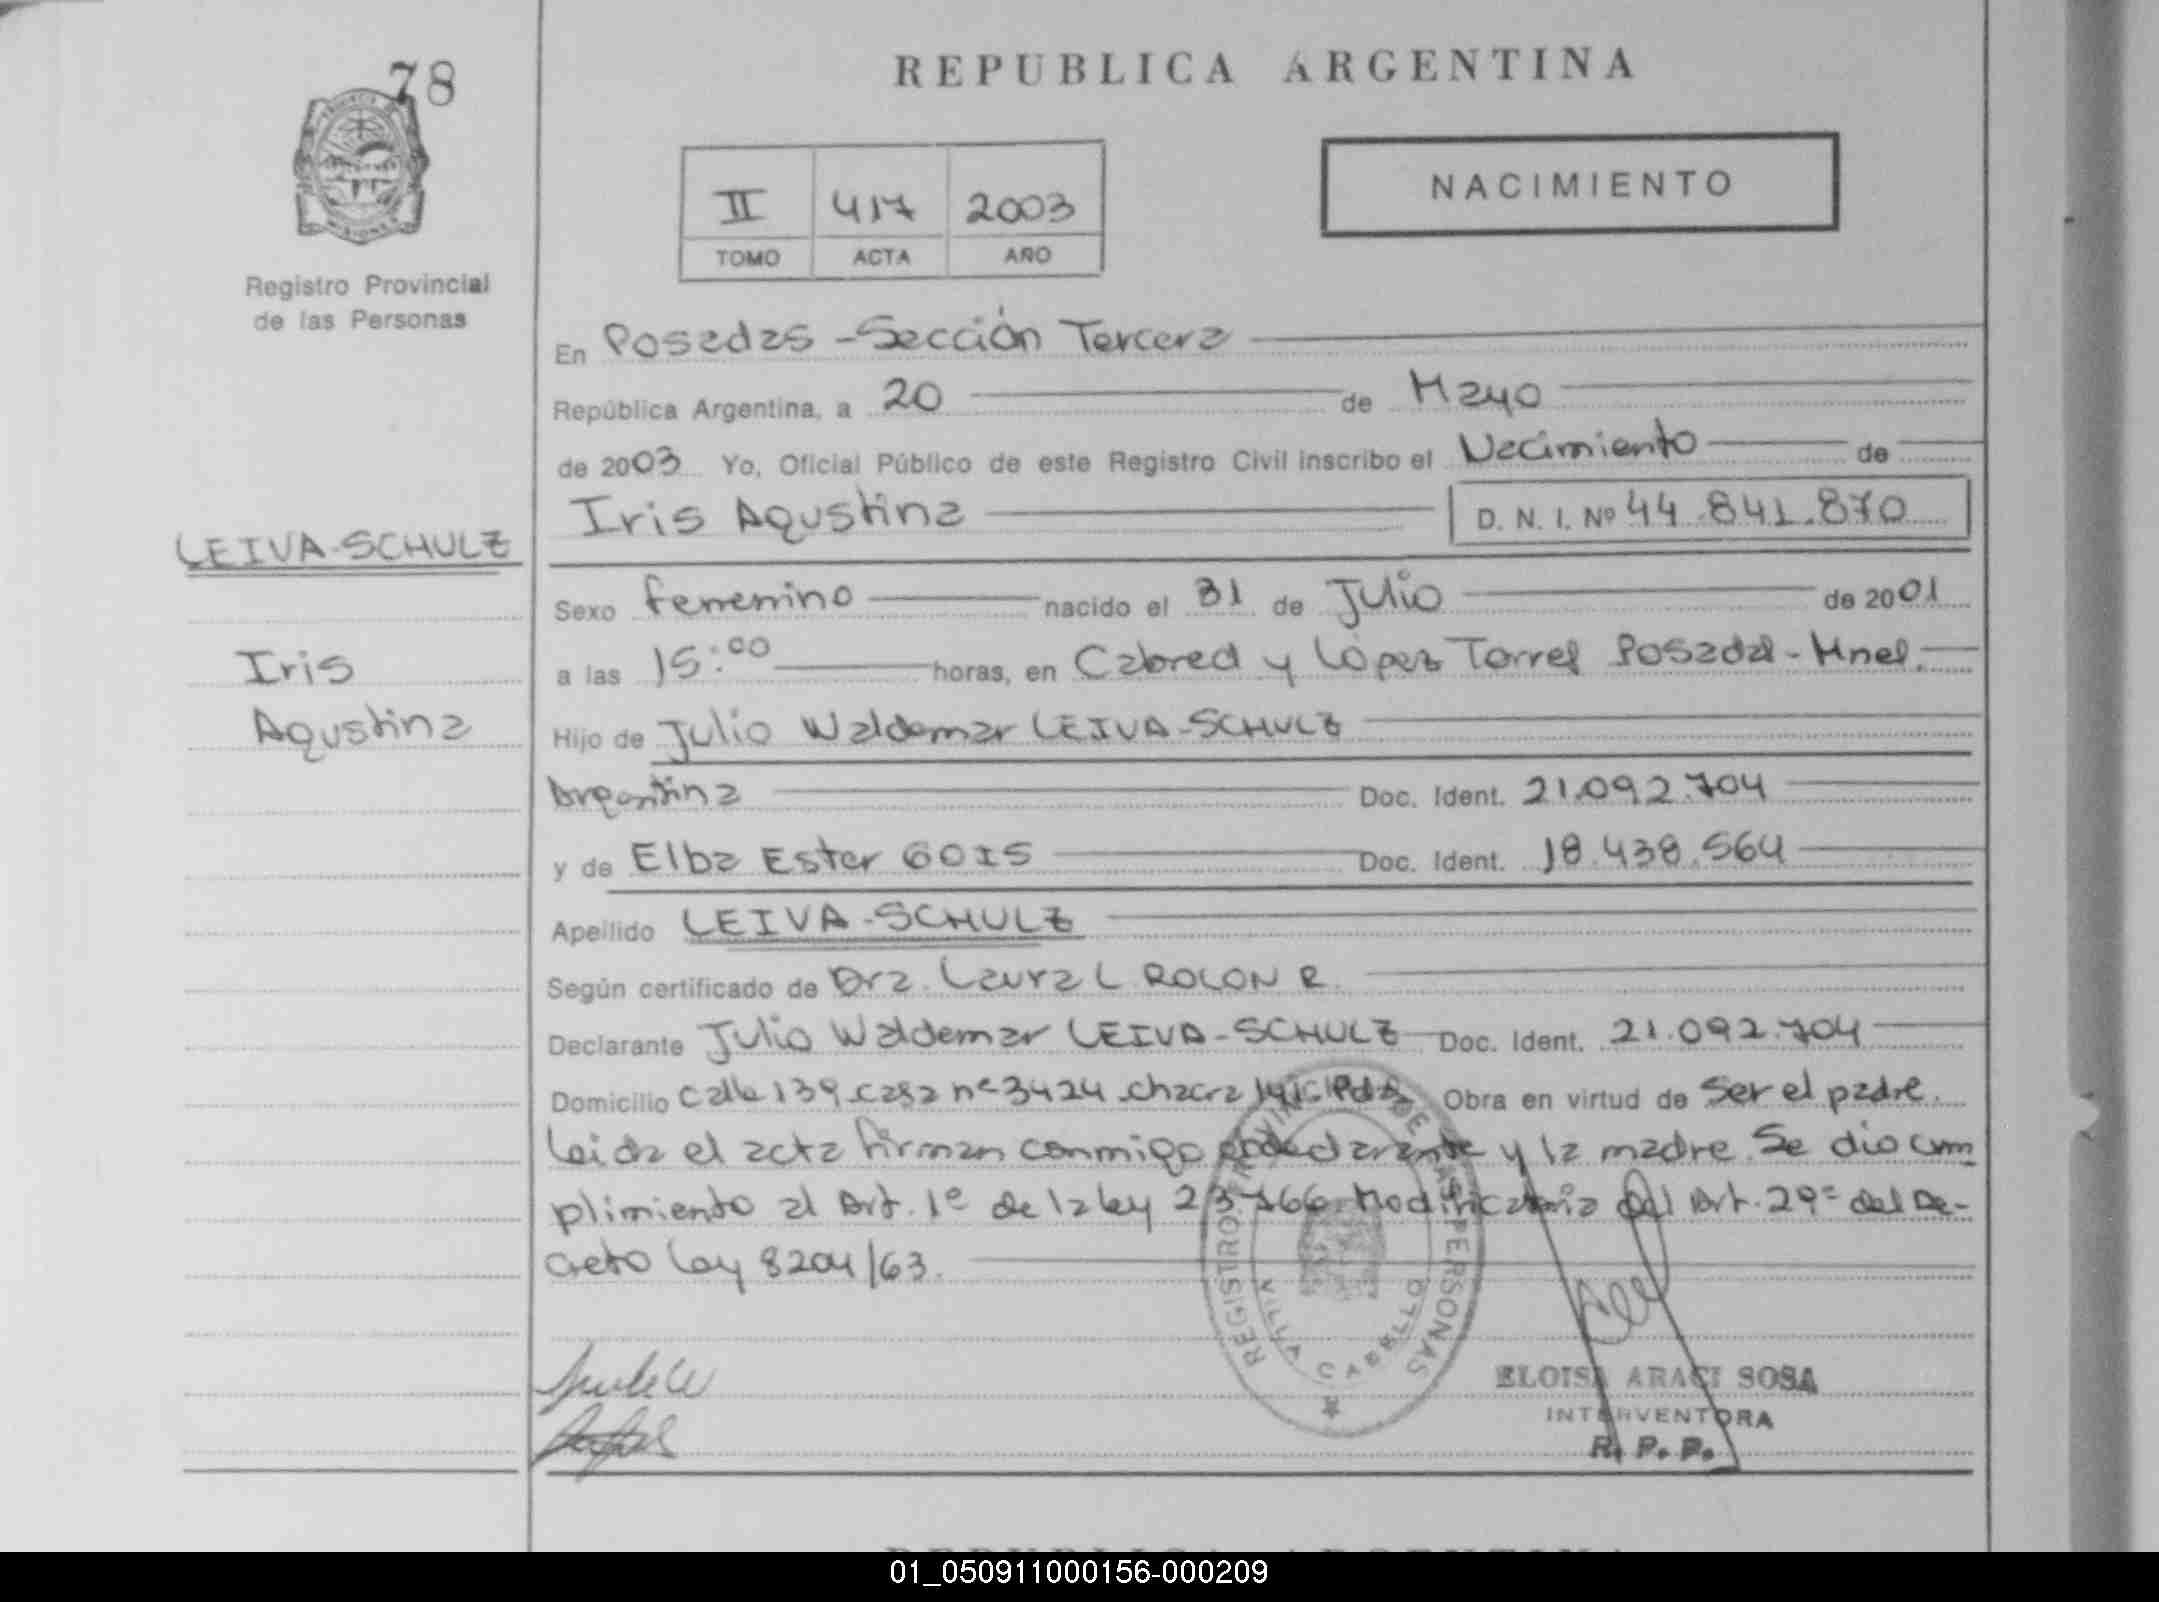 78
REPUBLICA ARGENTINA
NACIMIENTO
II 417 2003
TOMO ACTA AÑO
Registro Provincial
de las Personas
En Posadas - Sección Tercera
República Argentina, a 20 de Mayo
de 2003 Yo, Oficial Público de este Registro Civil inscribo el Nacimiento de
Iris Agustina D. N. I. Nº 44.841.870
LEIVA-SCHULZ
Iris
Agustina
Sexo femenino nacido el 31 de Julio de 2001
a las 15:00 horas, en Cabred y López Torres Posadas - Mnes.
Hijo de Julio Waldemar LEIVA-SCHULZ
Argentina Doc. Ident. 21.092.704
y de Elba Ester GOIS Doc. Ident. 18.438.564
Apellido LEIVA-SCHULZ
Según certificado de Dra. Laura L ROLON R.
Declarante Julio Waldemar LEIVA-SCHULZ Doc. Ident. 21.092.704
Domicilio Calle 139 casa nº 3424 chacra Obra en virtud de ser el padre.
Leida el acta firman conmigo el declarante y la madre. Se dio cum
plimiento al Art. 1º de la ley 23.766 Modificatoria del Art. 29º del De-
creto Ley 8204/63.
REGISTRO PROVINCIAL DE LAS PERSONAS
VILLA CABELLO
ELOISA ARACI SOSA
INTERVENTORA
R. P. P.
REPUBLICA ARGENTINA
01_050911000156-000209